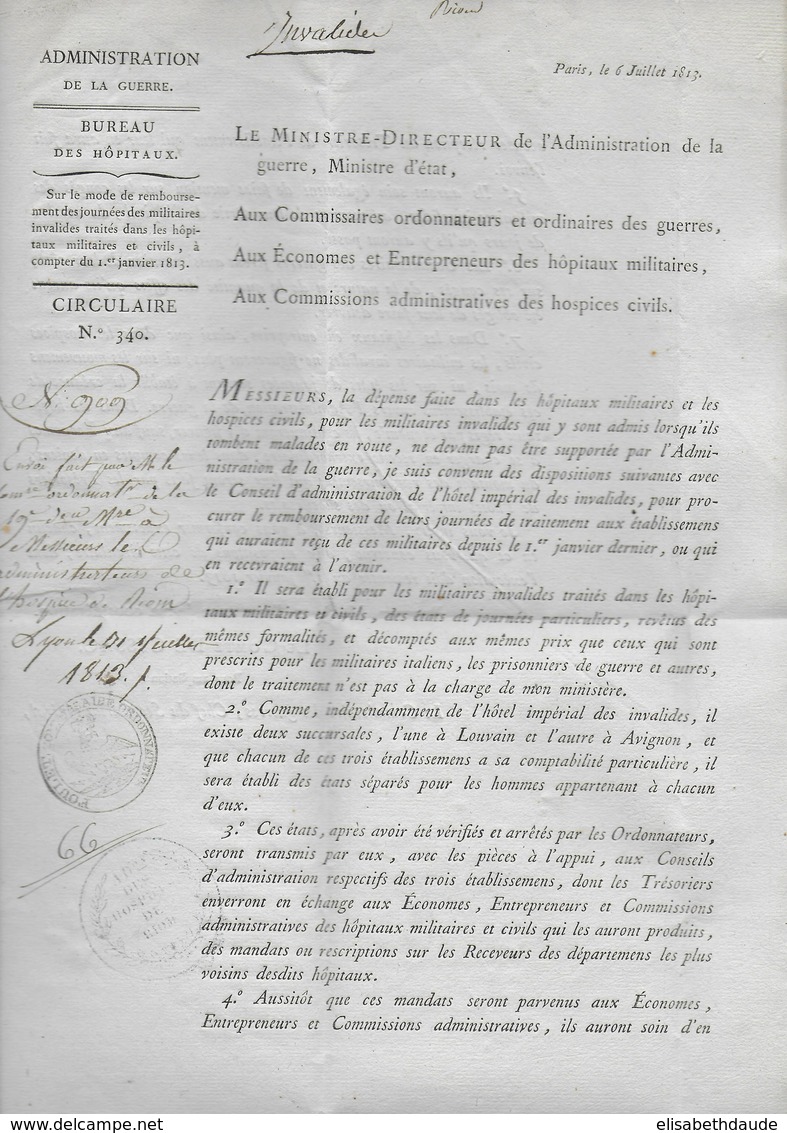 Invalides
Ricard
ADMINISTRATION
DE LA GUERRE.
BUREAU
DES HÔPITAUX.
Sur le mode de rembourse-
ment des journées des militaires
invalides traités dans les hôpi-
taux militaires et civils, à
compter du 1.er janvier 1813.
CIRCULAIRE
N.º 340.
Paris, le 6 Juillet 1813.
LE MINISTRE-DIRECTEUR de l'Administration de la
guerre, Ministre d'état,
Aux Commissaires ordonnateurs et ordinaires des guerres,
Aux Économes et Entrepreneurs des hôpitaux militaires,
Aux Commissions administratives des hospices civils.
N.º 909
Envoi fait par M. le
ordonnat.r de la
19.e à
Messieurs les
administrateurs de
l'hospice de Riom
Lyon le 31 Juillet
1813.
POULLET COMMISSAIRE ORDONNATEUR
66
HOSPICE DE RIOM
MESSIEURS, la dépense faite dans les hôpitaux militaires et les
hospices civils, pour les militaires invalides qui y sont admis lorsqu'ils
tombent malades en route, ne devant pas être supportée par l'Admi-
nistration de la guerre, je suis convenu des dispositions suivantes avec
le Conseil d'administration de l'hôtel impérial des invalides, pour pro-
curer le remboursement de leurs journées de traitement aux établissemens
qui auraient reçu de ces militaires depuis le 1.er janvier dernier, ou qui
en recevraient à l'avenir.
1.º Il sera établi pour les militaires invalides traités dans les hôpi-
taux militaires et civils, des états de journées particuliers, revêtus des
mêmes formalités, et décomptés aux mêmes prix que ceux qui sont
prescrits pour les militaires italiens, les prisonniers de guerre et autres,
dont le traitement n'est pas à la charge de mon ministère.
2.º Comme, indépendamment de l'hôtel impérial des invalides, il
existe deux succursales, l'une à Louvain et l'autre à Avignon, et
que chacun de ces trois établissemens a sa comptabilité particulière, il
sera établi des états séparés pour les hommes appartenant à chacun
d'eux.
3.º Ces états, après avoir été vérifiés et arrêtés par les Ordonnateurs,
seront transmis par eux, avec les pièces à l'appui, aux Conseils
d'administration respectifs des trois établissemens, dont les Trésoriers
enverront en échange aux Économes, Entrepreneurs et Commissions
administratives des hôpitaux militaires et civils qui les auront produits,
des mandats ou rescriptions sur les Receveurs des départemens les plus
voisins desdits hôpitaux.
4.º Aussitôt que ces mandats seront parvenus aux Économes,
Entrepreneurs et Commissions administratives, ils auront soin d'en
elisabethdaude